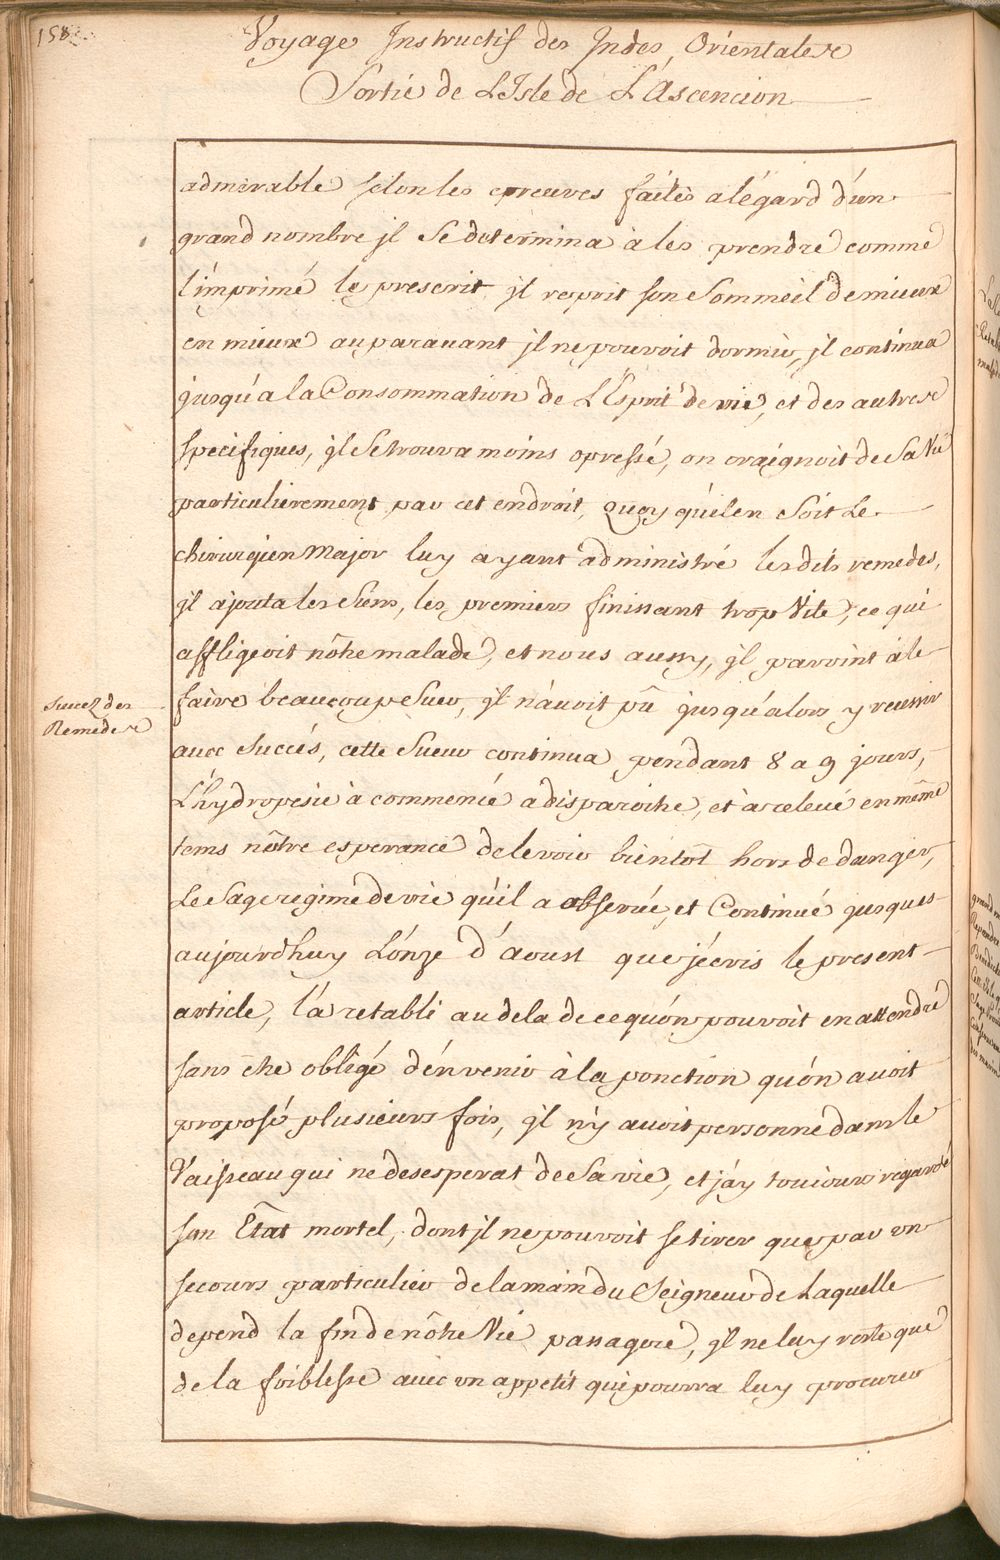 158
Voyage Instructif des Indes Orientales
Sortié de L'Isle de L'Ascencion
admirable selon les epreuves faites a légard d'un
grand nombre jl Se determina à les prendre comme
l'imprimé le prescrit, jl reprit son Sommeil de mieux
en mieux auparauant jl ne pouvoit dormir, jl continua
jusqu'a la Consommation de L'Esprit de vie, et des autres
specifiques, jl Se trouva moins opressé, on craignoit de Sa Vie
particulierement par cet endroit, Quoy qu'il en Soit Le
chirurgien Major luy ayant administré les dits remedes,
jl ajouta les Siens, les premiers finissant trop Vite, ce qui
affligeoit nôtre malade, et nous aussy, jl parvint à le
faire beaucoup Suer, jl n'auoit pû jusqu'alors y reussir
Succez des
Remedes
auec Succés, cette Sueur continua pendant 8 a 9 jours,
L'hydropesie à commencé a disparoitre, et à releué en même
tems nôtre esperance de le voir bientôt hors de danger,
Le Sage regime de vie qu'il a observée, et Continué jusques
aujourdhuy L'onze d'aoust que j'écris le present
article, l'a retabli au dela de ce qu'on pouvoit en attendre
sans être obligé d'en venir à la ponction qu'on auoit
proposé plusieurs fois, jl n'y auoit personne dans le
Vaisseau qui ne desesperat de Sa vie, et j'ay toujours regardé
son Etat mortel, dont jl ne pouvoit se tirer que par un
secours particulier de la main du Seigneur de Laquelle
depend la fin de nôtre Vie passagere, jl ne luy reste que
de la foiblesse auec un appetit qui pourra luy procurer